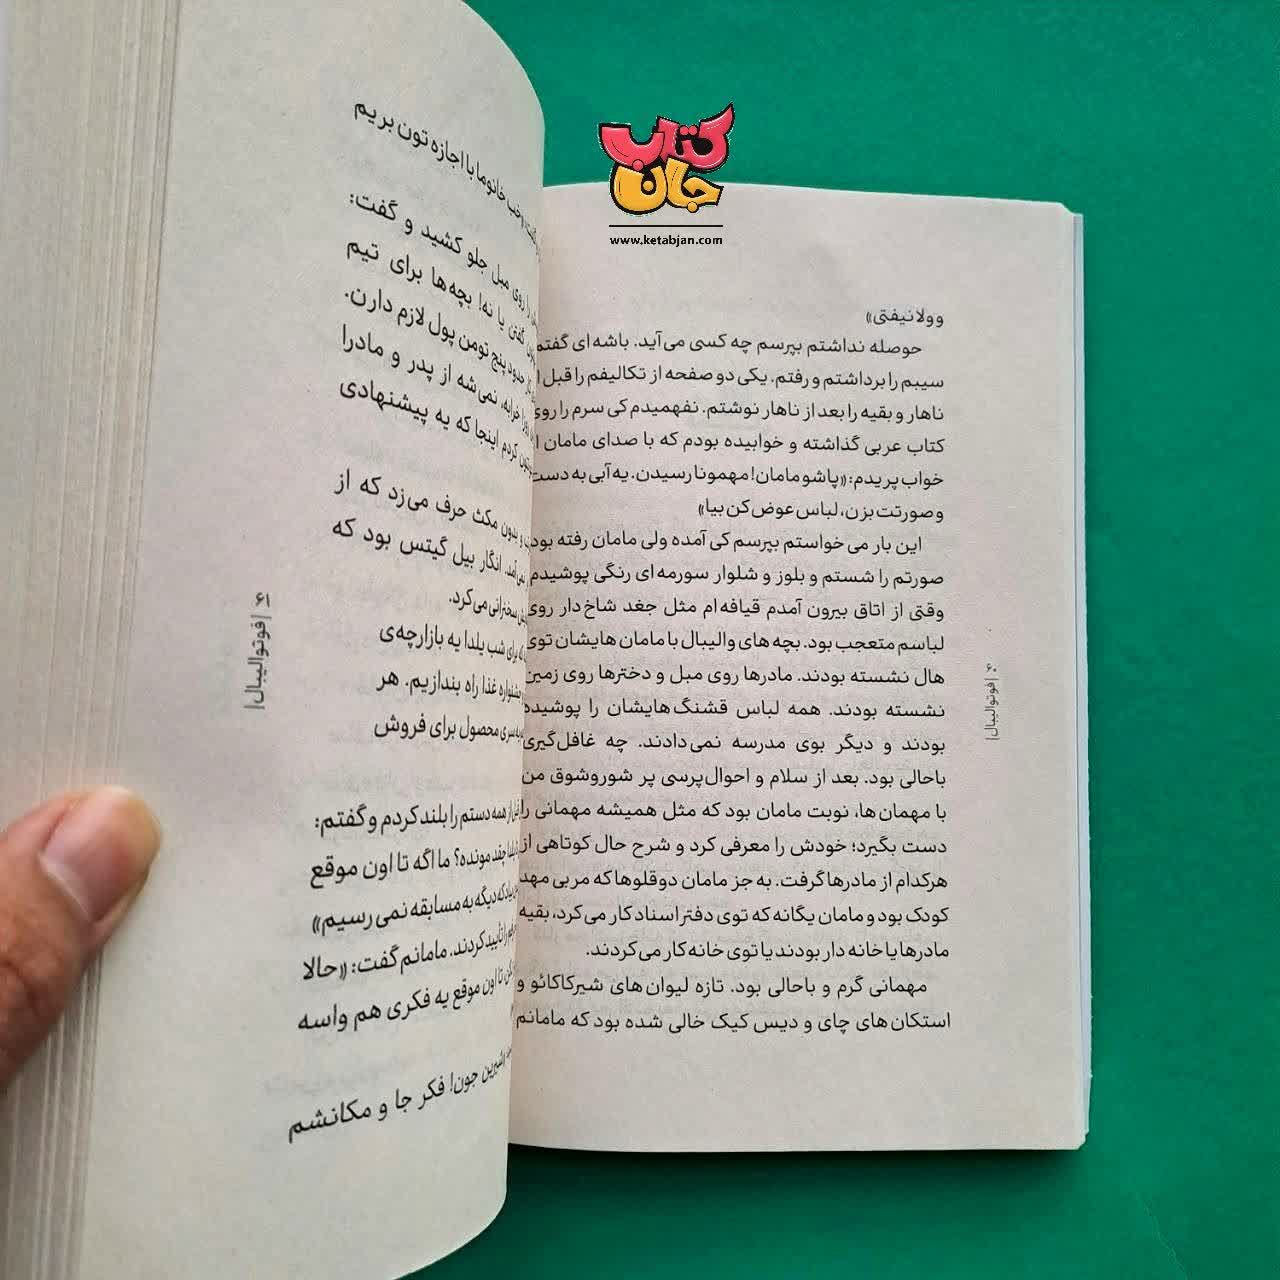 کتاب
جان
www.ketabjan.com
وولا نیفتی»
حوصله نداشتم بپرسم چه کسی می‌آید. باشه ای گفتم
سیبم را برداشتم و رفتم. یکی دو صفحه از تکالیفم را قبل ا
ناهار و بقیه را بعد از ناهار نوشتم. نفهمیدم کی سرم را روی
کتاب عربی گذاشته و خوابیده بودم که با صدای مامان ا
خواب پریدم: «پاشو مامان! مهمونا رسیدن. یه آبی به دست
و صورتت بزن، لباس عوض کن بیا»
این بار می‌خواستم بپرسم کی آمده ولی مامان رفته بود
صورتم را شستم و بلوز و شلوار سورمه‌ای رنگی پوشیدم
وقتی از اتاق بیرون آمدم قیافه‌ام مثل جغد شاخ‌دار روی
لباسم متعجب بود. بچه‌های والیبال با مامان‌هایشان توی
هال نشسته بودند. مادرها روی مبل و دخترها روی زمین
نشسته بودند. همه لباس قشنگ‌هایشان را پوشیده
بودند و دیگر بوی مدرسه نمی‌دادند. چه غافل‌گیری
باحالی بود. بعد از سلام و احوال‌پرسی پر شوروشوق من
با مهمان‌ها، نوبت مامان بود که مثل همیشه مهمانی را
دست بگیرد؛ خودش را معرفی کرد و شرح حال کوتاهی از
هرکدام از مادرها گرفت. به جز مامان دوقلوها که مربی مهد
کودک بود و مامان یگانه که توی دفتر اسناد کار می‌کرد، بقیه
مادرها یا خانه دار بودند یا توی خانه کار می‌کردند.
مهمانی گرم و باحالی بود. تازه لیوان‌های شیرکاکائو و
استکان‌های چای و دیس کیک خالی شده بود که مامانم
|فوتوالیبال|
خب خانوما با اجازه تون بریم
را روی مبل جلو کشید و گفت:
گفتی یا نه! بچه‌ها برای تیم
حدود پنج تومن پول لازم دارن.
خرابه، نمی‌شه از پدر و مادرا
کردم اینجا که یه پیشنهادی
و بدون مکث حرف می‌زد که از
می‌آمد. انگار بیل گیتس بود که
سخنرانی می‌کرد.
که برای شب یلدا یه بازارچه‌ی
جشنواره غذا راه بندازیم. هر
یه سری محصول برای فروش
از همه دستم را بلند کردم و گفتم:
یلدا چقد مونده؟ ما اگه تا اون موقع
که دیگه به مسابقه نمی‌رسیم»
را تایید کردند. مامانم گفت: «حالا
تا اون موقع یه فکری هم واسه
شیرین جون! فکر جا و مکانشم
|فوتوالیبال|